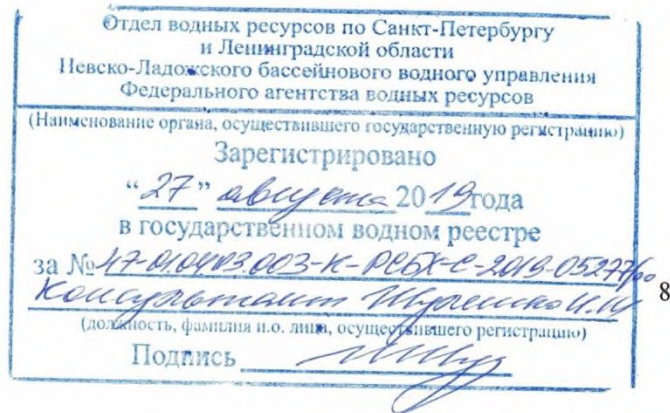 Отдел водных ресурсов по Санкт-Петербургу
и Ленинградской области
Невско-Ладожского бассейнового водного управления
Федерального агентства водных ресурсов
(Наименование органа, осуществившего государственную регистрацию)
Зарегистрировано
“27” августа 2019 года
в государственном водном реестре
за № 47-01.04.03.003-К-РСБХ-С-2019-05277/00
Консультант
8
(должность, фамилия и.о. лица, осуществившего регистрацию)
Подпись